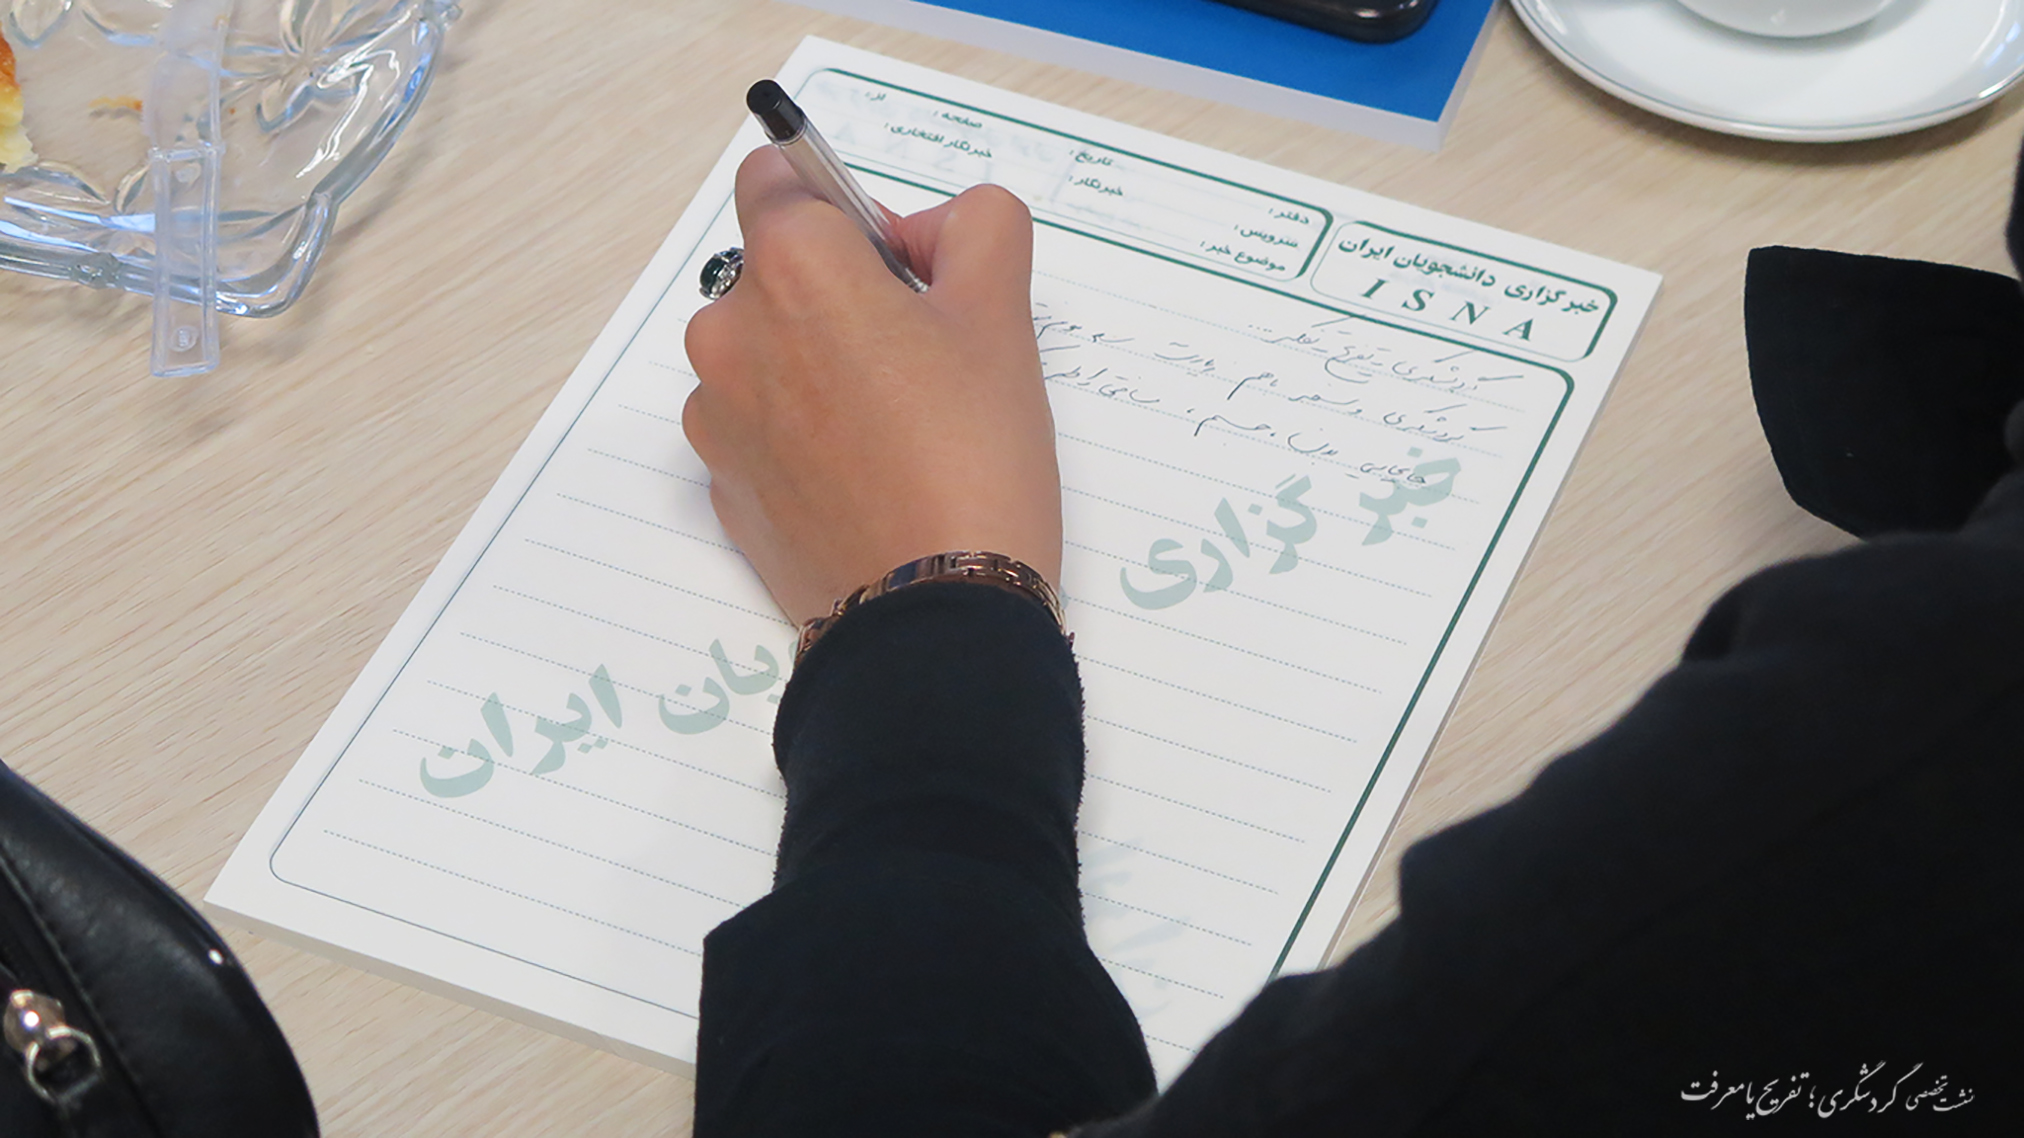 خبرگزاری دانشجویان ایران
ISNA
دفتر :
سرویس :
موضوع خبر :
تاریخ :
خبرنگار :
صفحه :
از :
خبرنگار افتخاری :
گردشگری - تفریح - تفکر ...
گردشگری و سفر باهم
جابجایی بدن، جسم، مسافتی را طی
خبرگزاری
یان ایران
نشست تخصصی گردشگری؛ تفریح یا معرفت